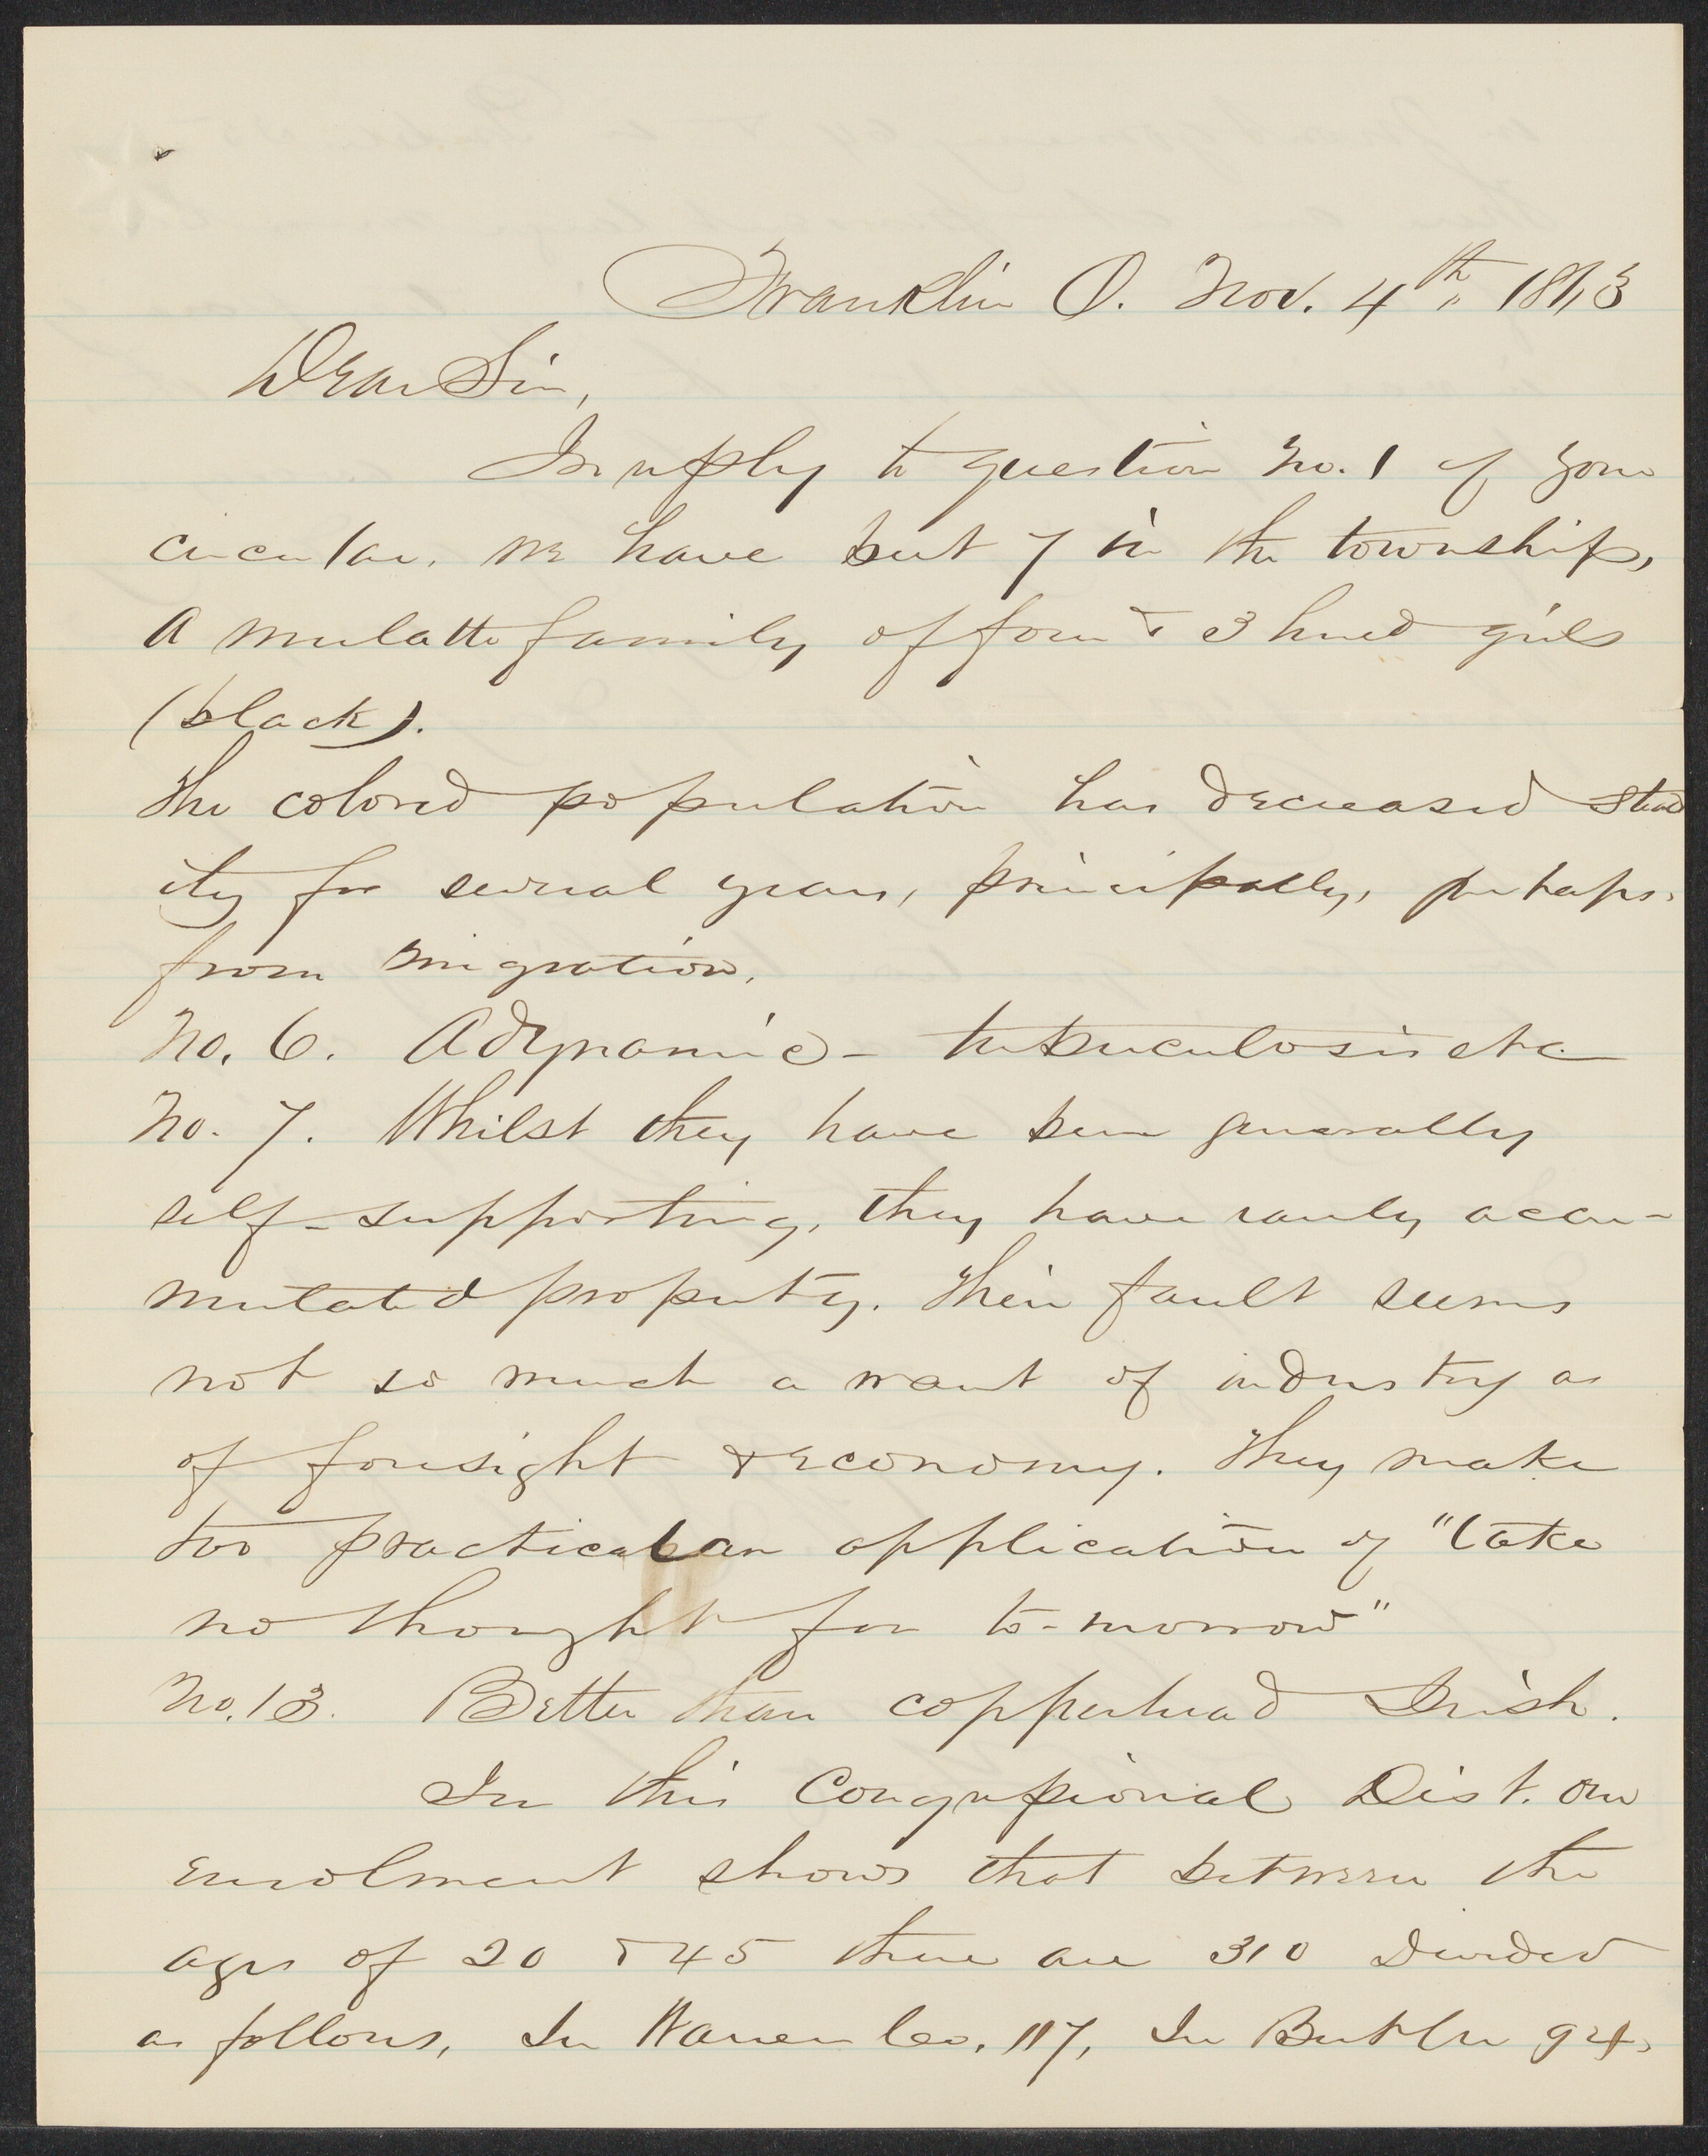 Franklin O. Nov. 4th, 1863
Dear Sir,
In reply to question No. 1 of your
circular, we have but 7 in the township,
A mulatto family of four & 3 hired girls
(black).
The colored population has decreased stead
ily for several years, principally, perhaps,
from migration.
No. 6. Adynamic - tuberculosis etc
No. 7. Whilst they have been generally
self-supporting, they have rarely accu-
mulated property. Their fault seems
not so much a want of industry as
of foresight & economy. They make
too practical an application of "take
no thought for to-morrow"
No. 13. Better than copperhead Irish.
In this Congressional Dist. our
enrolment shows that between the
ages of 20 & 45 there are 310 divided
as follows, In Warren Co. 117, In Butler 94,